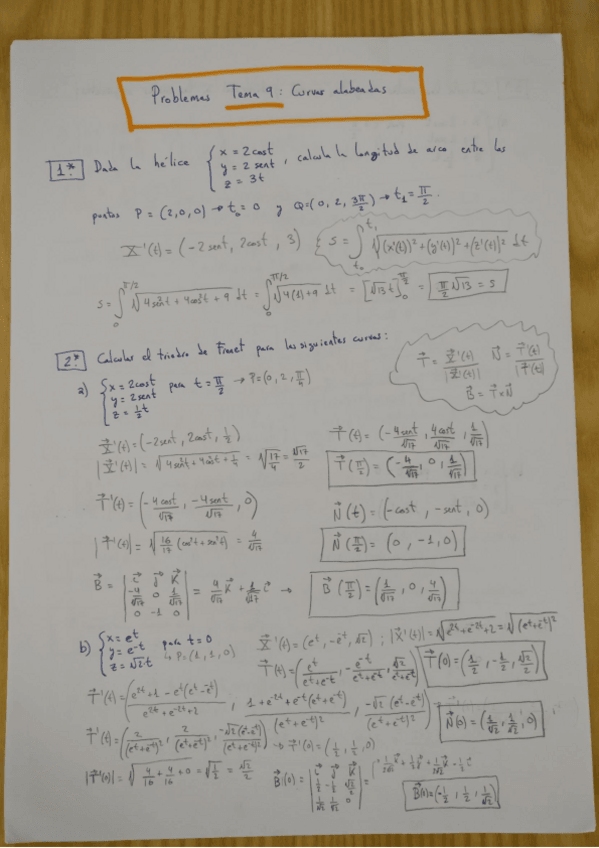 Problemas Tema 9: Curvas alabeadas
1.* Dada la hélice { x = 2cost, y = 2sent, z = 3t , calcula la longitud de arco entre los
puntos P = (2,0,0) → t₀ = 0 y Q = (0, 2, 3π/2) → t₁ = π/2.
X'(t) = (-2sent, 2cost, 3)
s = ∫_{t₀}^{t₁} √((x'(t))² + (y'(t))² + (z'(t))²) dt
s = ∫₀^{π/2} √(4sen²t + 4cos²t + 9) dt = ∫₀^{π/2} √(4(1)+9) dt = [√13 t]₀^{π/2} = π/2 √13 = s
2.* Calcular el triedro de Frenet para las siguientes curvas:
T = X'(t)/|X'(t)| N = T'(t)/|T'(t)|
B = T×N
a) { x = 2cost, y = 2sent, z = ½t para t = π/2 → P = (0, 2, π/4)
X'(t) = (-2sent, 2cost, ½)
|X'(t)| = √(4sen²t + 4cos²t + ¼) = √(17/4) = √17/2
T(t) = (-4sent/√17, 4cost/√17, 1/√17)
T(π/2) = (-4/√17, 0, 1/√17)
T'(t) = (-4cost/√17, -4sent/√17, 0)
N(t) = (-cost, -sent, 0)
|T'(t)| = √(16/17 (cos²t + sen²t)) = 4/√17
N(π/2) = (0, -1, 0)
B = | i j k ; -4/√17 0 1/√17 ; 0 -1 0 | = 4/√17 k + 1/√17 i → B(π/2) = (1/√17, 0, 4/√17)
b) { x = e^t, y = e^-t, z = √2·t para t = 0
↳ P = (1, 1, 0)
X'(t) = (e^t, -e^-t, √2) ; |X'(t)| = √(e^2t + e^-2t + 2) = √((e^t + e^-t)²)
T(t) = (e^t/(e^t+e^-t), -e^-t/(e^t+e^-t), √2/(e^t+e^-t)) T(0) = (½, -½, 1/√2)
T'(t) = (
T'(t) = (2/(e^t+e^-t)², 2/(e^t+e^-t)², -√2(e^t-e^-t)/(e^t+e^-t)²) → T'(0) = (½, ½, 0)
N(0) = (1/√2, 1/√2, 0)
|T'(0)| = √(4/16 + 4/16 + 0) = √(1/2) = √2/2
B(0) = | i j k ; ½ -½ √2/2 ; 1/√2 1/√2 0 | =
B(0) = (-½, ½, 1/√2)